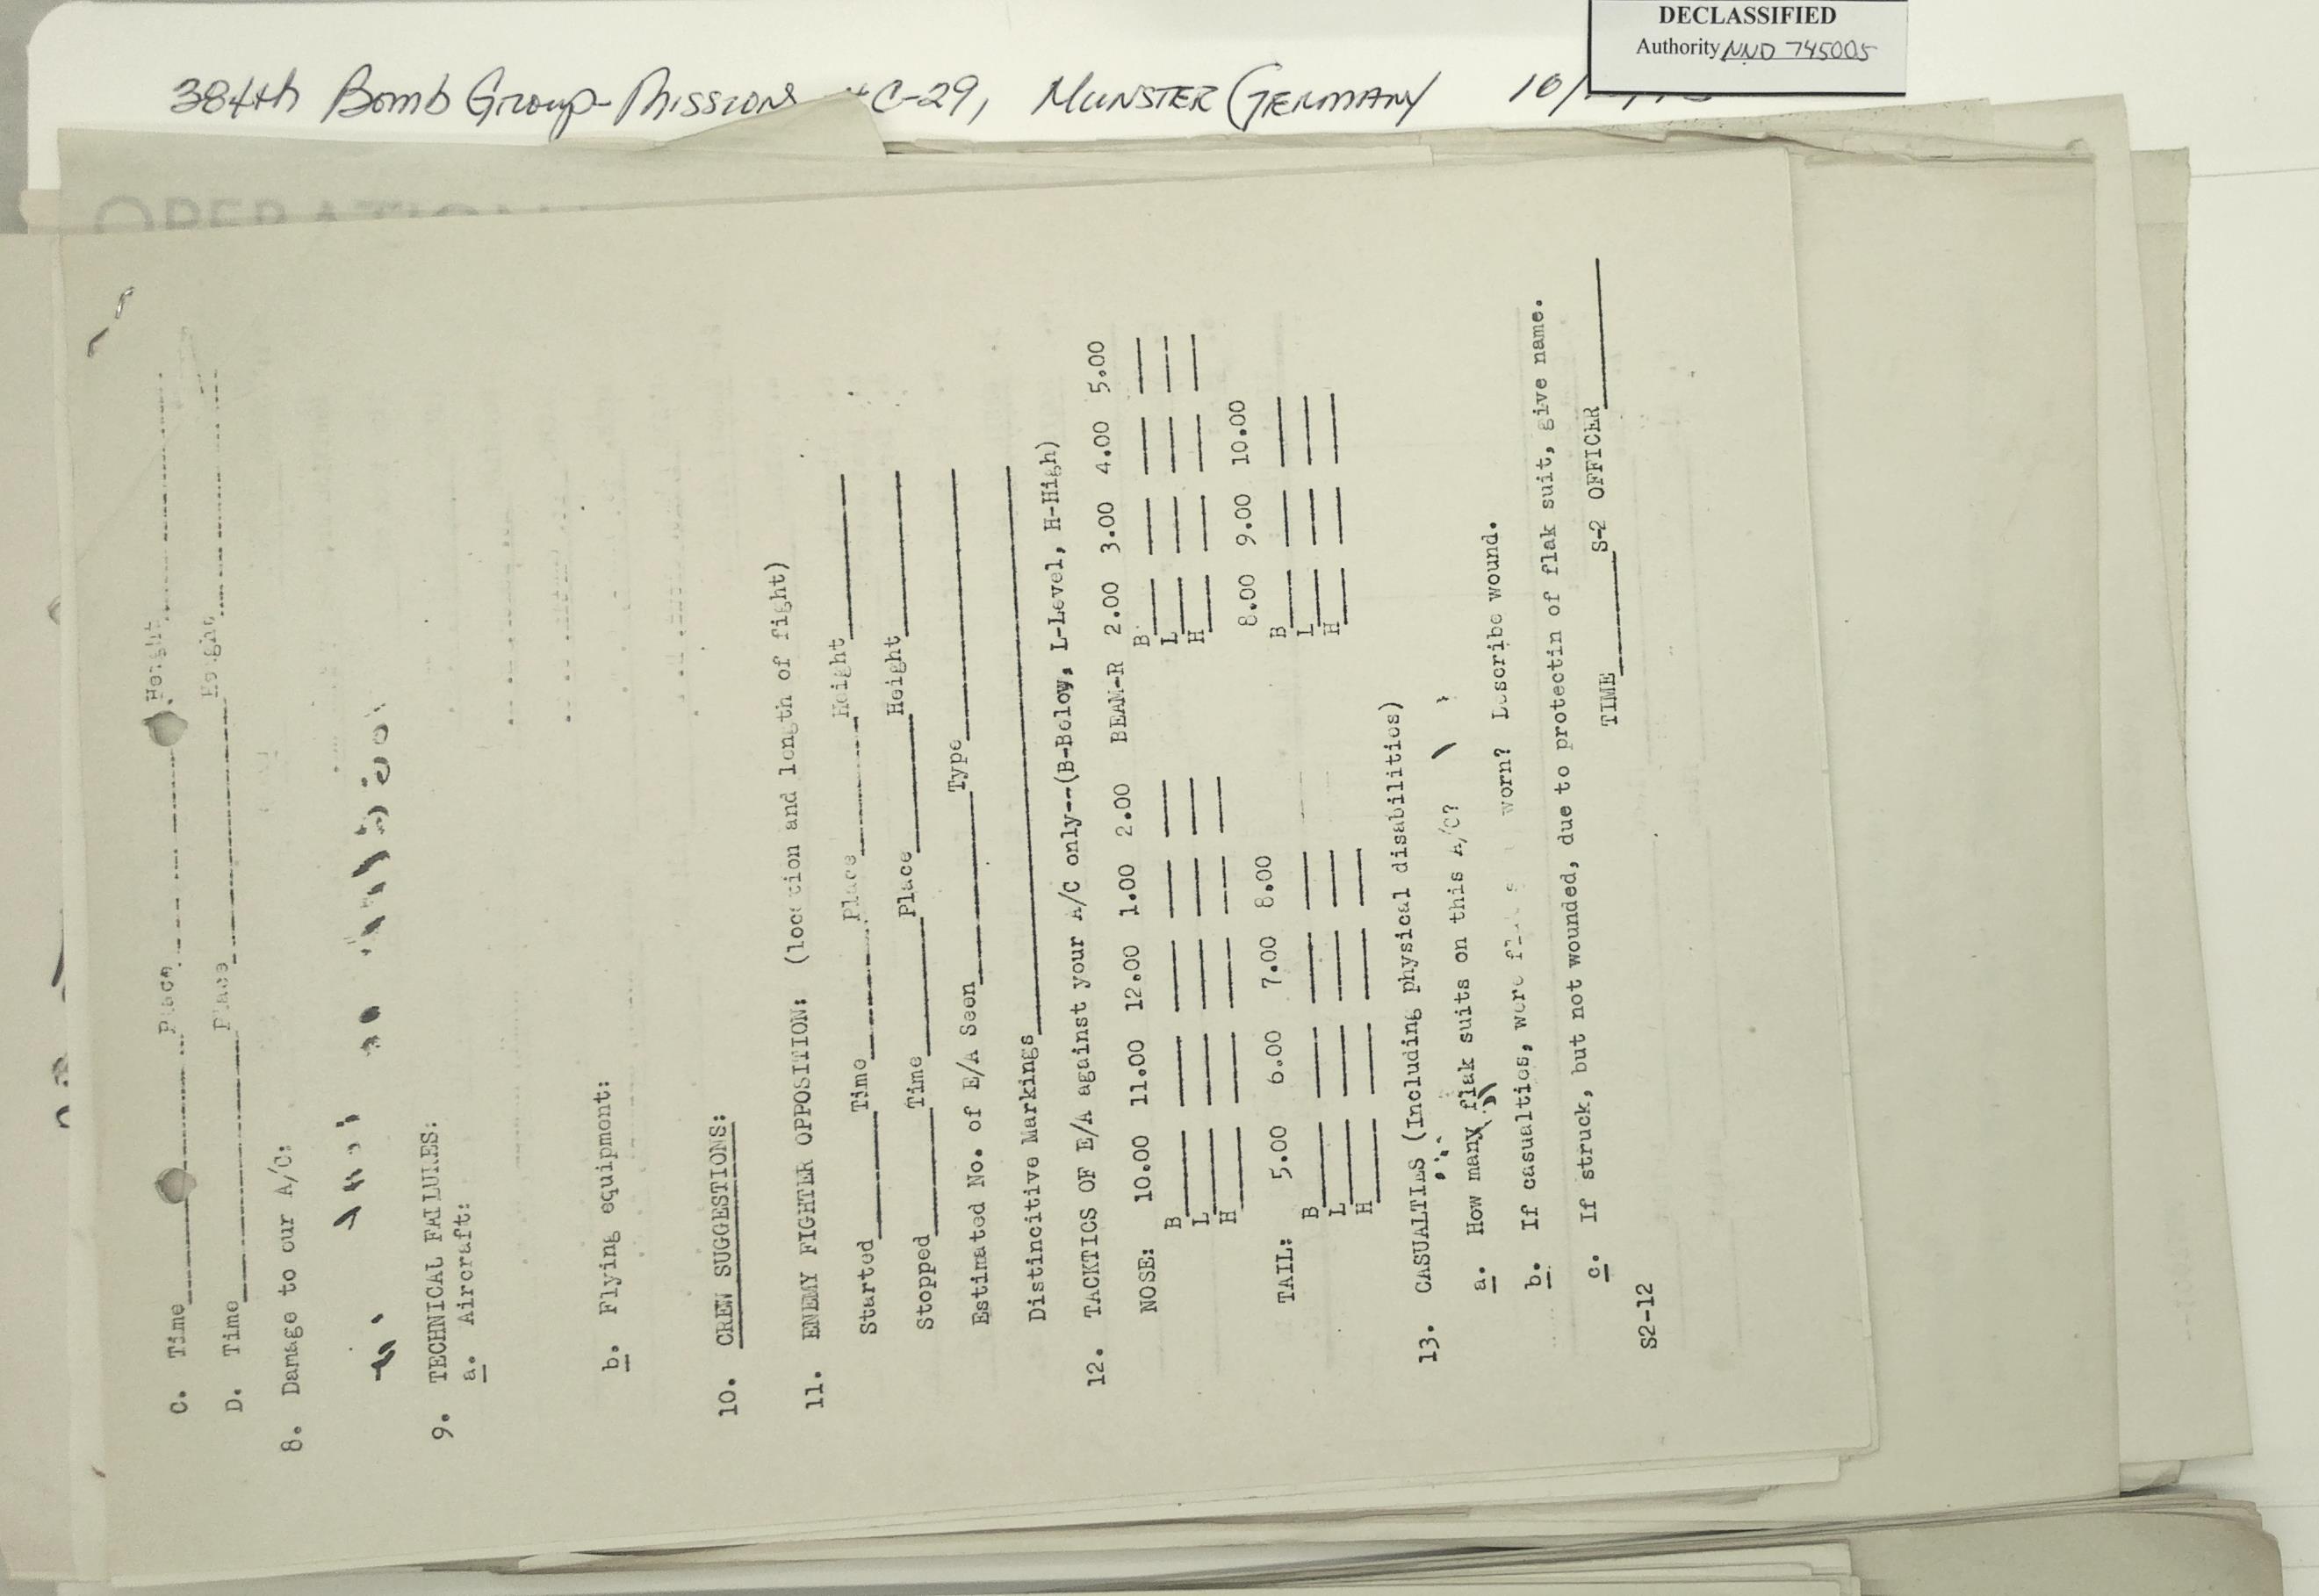 DECLASSIFIED
Authority NND 745005
384th Bomb Group-Missions #C-29, MUNSTER GERMANY 10/
OPERATION
C. Time____ Place____ Height____
D. Time____ Place____ Height____
8. Damage to our A/C:
9. TECHNICAL FAILURES:
a. Aircraft:
b. Flying equipment:
10. CREW SUGGESTIONS:
11. ENEMY FIGHTER OPPOSITION: (location and length of fight)
Started____ Time____ Place____ Height____
Stopped____ Time____ Place____ Height____
Estimated No. of E/A Seen____ Type____
Distincitive Markings____
12. TACKTICS OF E/A against your A/C only--(B-Below, L-Level, H-High)
NOSE: 10.00 11.00 12.00 1.00 2.00 BEAM-R 2.00 3.00 4.00 5.00
B____ B____
L____ L____
H____ H____
TAIL: 5.00 6.00 7.00 8.00 8.00 9.00 10.00
B____ B____
L____ L____
H____ H____
13. CASUALTIES (Including physical disabilities)
a. How many flak suits on this A/C?
b. If casualties, were worn? Describe wound.
c. If struck, but not wounded, due to protectin of flak suit, give name.
TIME____ S-2 OFFICER____
S2-12